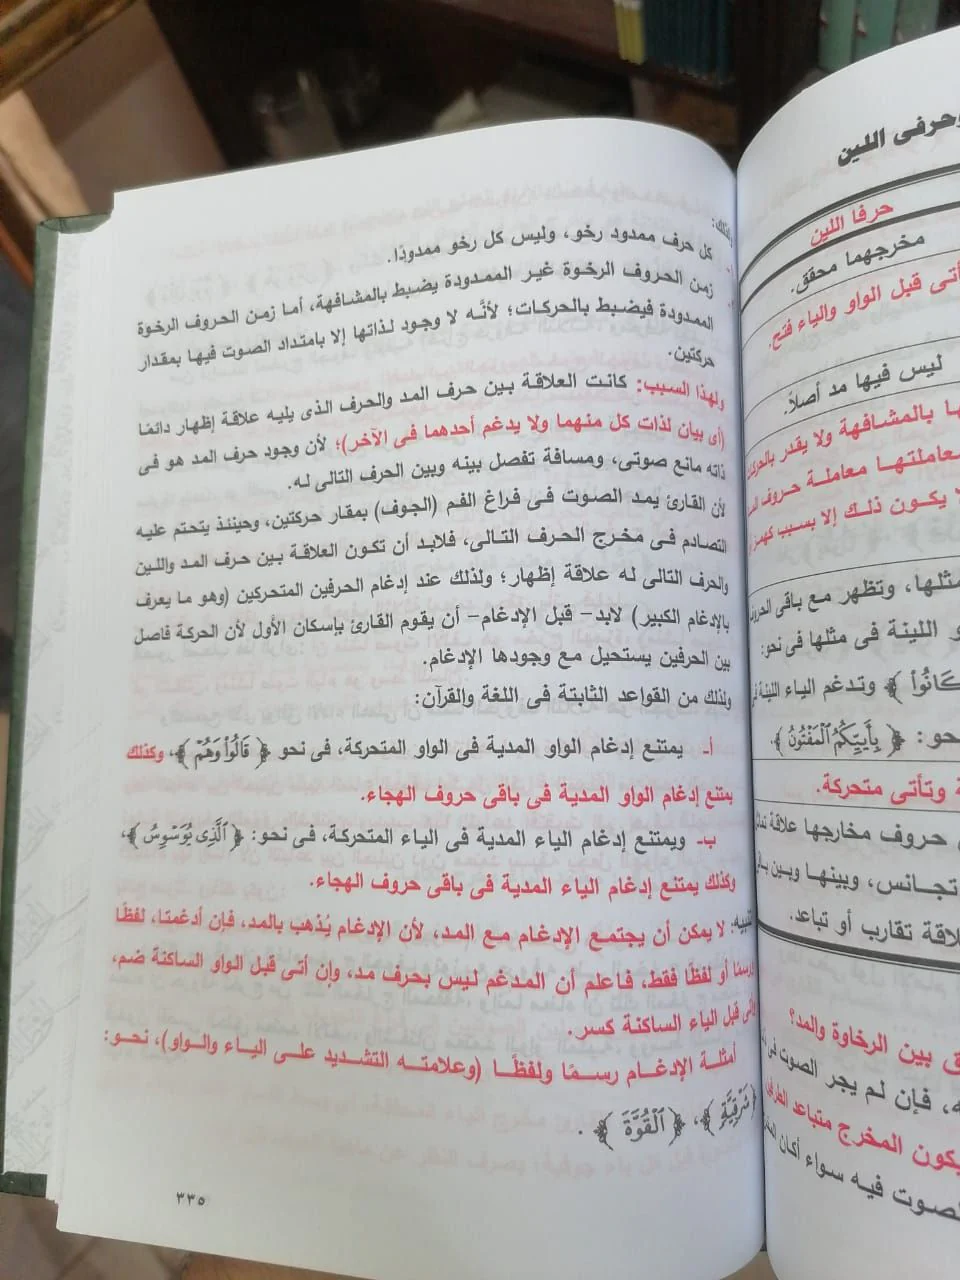 وحرفى اللين
حرفا اللين
مخرجهما محقق.
أتى قبل الواو والياء فتح.
ليس فيها مد أصلاً.
بالمشافهة ولا يقدر بالحركات
معاملتها معاملة حروف
يكون ذلك إلا بسبب كهمز
مثلها، وتظهر مع باقى الحروف
و اللينة فى مثلها فى نحو:
كَانُواْ ﴾ وتدغم الياء اللينة فى
نحو: ﴿ بِأَييِّكُمُ ٱلْمَفْتُونُ ﴾.
وتأتى متحركة.
حروف مخارجها علاقة
تجانس، وبينها وبين باقى
علاقة تقارب أو تباعد.
بين الرخاوة والمد؟
فإن لم يجر الصوت فى
يكون المخرج متباعد الطرفين
الصوت فيه سواء أكان
ولذلك:
كل حرف ممدود رخو، وليس كل رخو ممدودًا.
زمن الحروف الرخوة غير الممدودة يضبط بالمشافهة، أما زمن الحروف الرخوة
الممدودة فيضبط بالحركات؛ لأنَّه لا وجود لذاتها إلا بامتداد الصوت فيها بمقدار
حركتين.
ولهذا السبب: كانت العلاقة بين حرف المد والحرف الذى يليه علاقة إظهار دائمًا
(أى بيان لذات كل منهما ولا يدغم أحدهما فى الآخر)؛ لأن وجود حرف المد هو فى
ذاته مانع صوتى، ومسافة تفصل بينه وبين الحرف التالى له.
لأن القارئ يمد الصوت فى فراغ الفم (الجوف) بمقار حركتين، وحينئذ يتحتم عليه
التصادم فى مخرج الحرف التالى، فلابد أن تكون العلاقة بين حرف المد واللين
والحرف التالى له علاقة إظهار؛ ولذلك عند إدغام الحرفين المتحركين (وهو ما يعرف
بالإدغام الكبير) لابد- قبل الإدغام- أن يقوم القارئ بإسكان الأول لأن الحركة فاصل
بين الحرفين يستحيل مع وجودها الإدغام.
ولذلك من القواعد الثابتة فى اللغة والقرآن:
أ- يمتنع إدغام الواو المدية فى الواو المتحركة، فى نحو ﴿ قَالُواْ وَهُمْ ﴾، وكذلك
يمتنع إدغام الواو المدية فى باقى حروف الهجاء.
ب- ويمتنع إدغام الياء المدية فى الياء المتحركة، فى نحو: ﴿ ٱلَّذِى يُوَسْوِسُ ﴾،
وكذلك يمتنع إدغام الياء المدية فى باقى حروف الهجاء.
تنبيه: لا يمكن أن يجتمع الإدغام مع المد، لأن الإدغام يُذهب بالمد، فإن أدغمتا، لفظًا
ورسمًا أو لفظًا فقط، فاعلم أن المدغم ليس بحرف مد، وإن أتى قبل الواو الساكنة ضم،
وأتى قبل الياء الساكنة كسر.
أمثلة الإدغام رسمًا ولفظًا (وعلامته التشديد على الياء والواو)، نحو:
﴿ شَرْقِيَّةٍ ﴾، ﴿ ٱلْقُوَّةَ ﴾.
٣٣٥